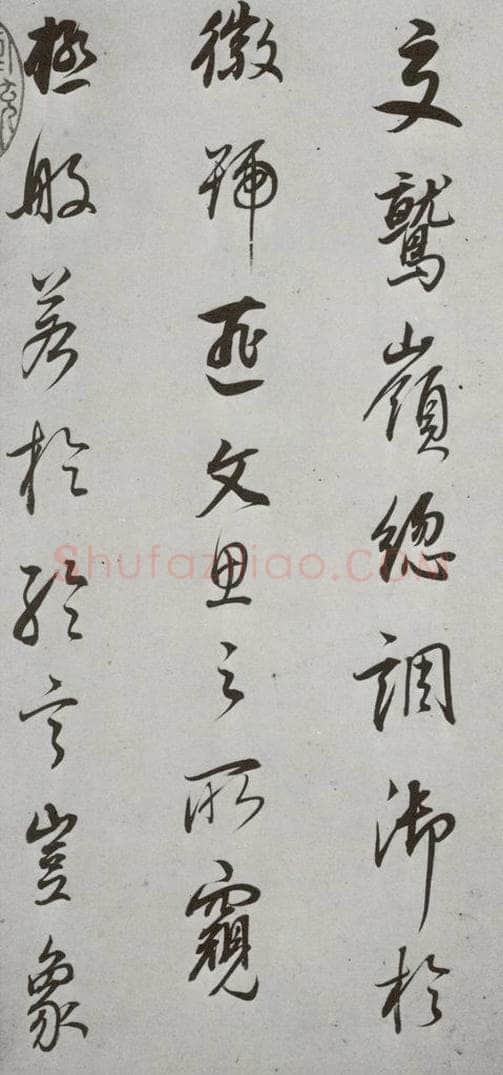 交鷲嶺總調御於
徽號匪文思之所窺
極般若於綸言豈象
Shufaziliao.COM